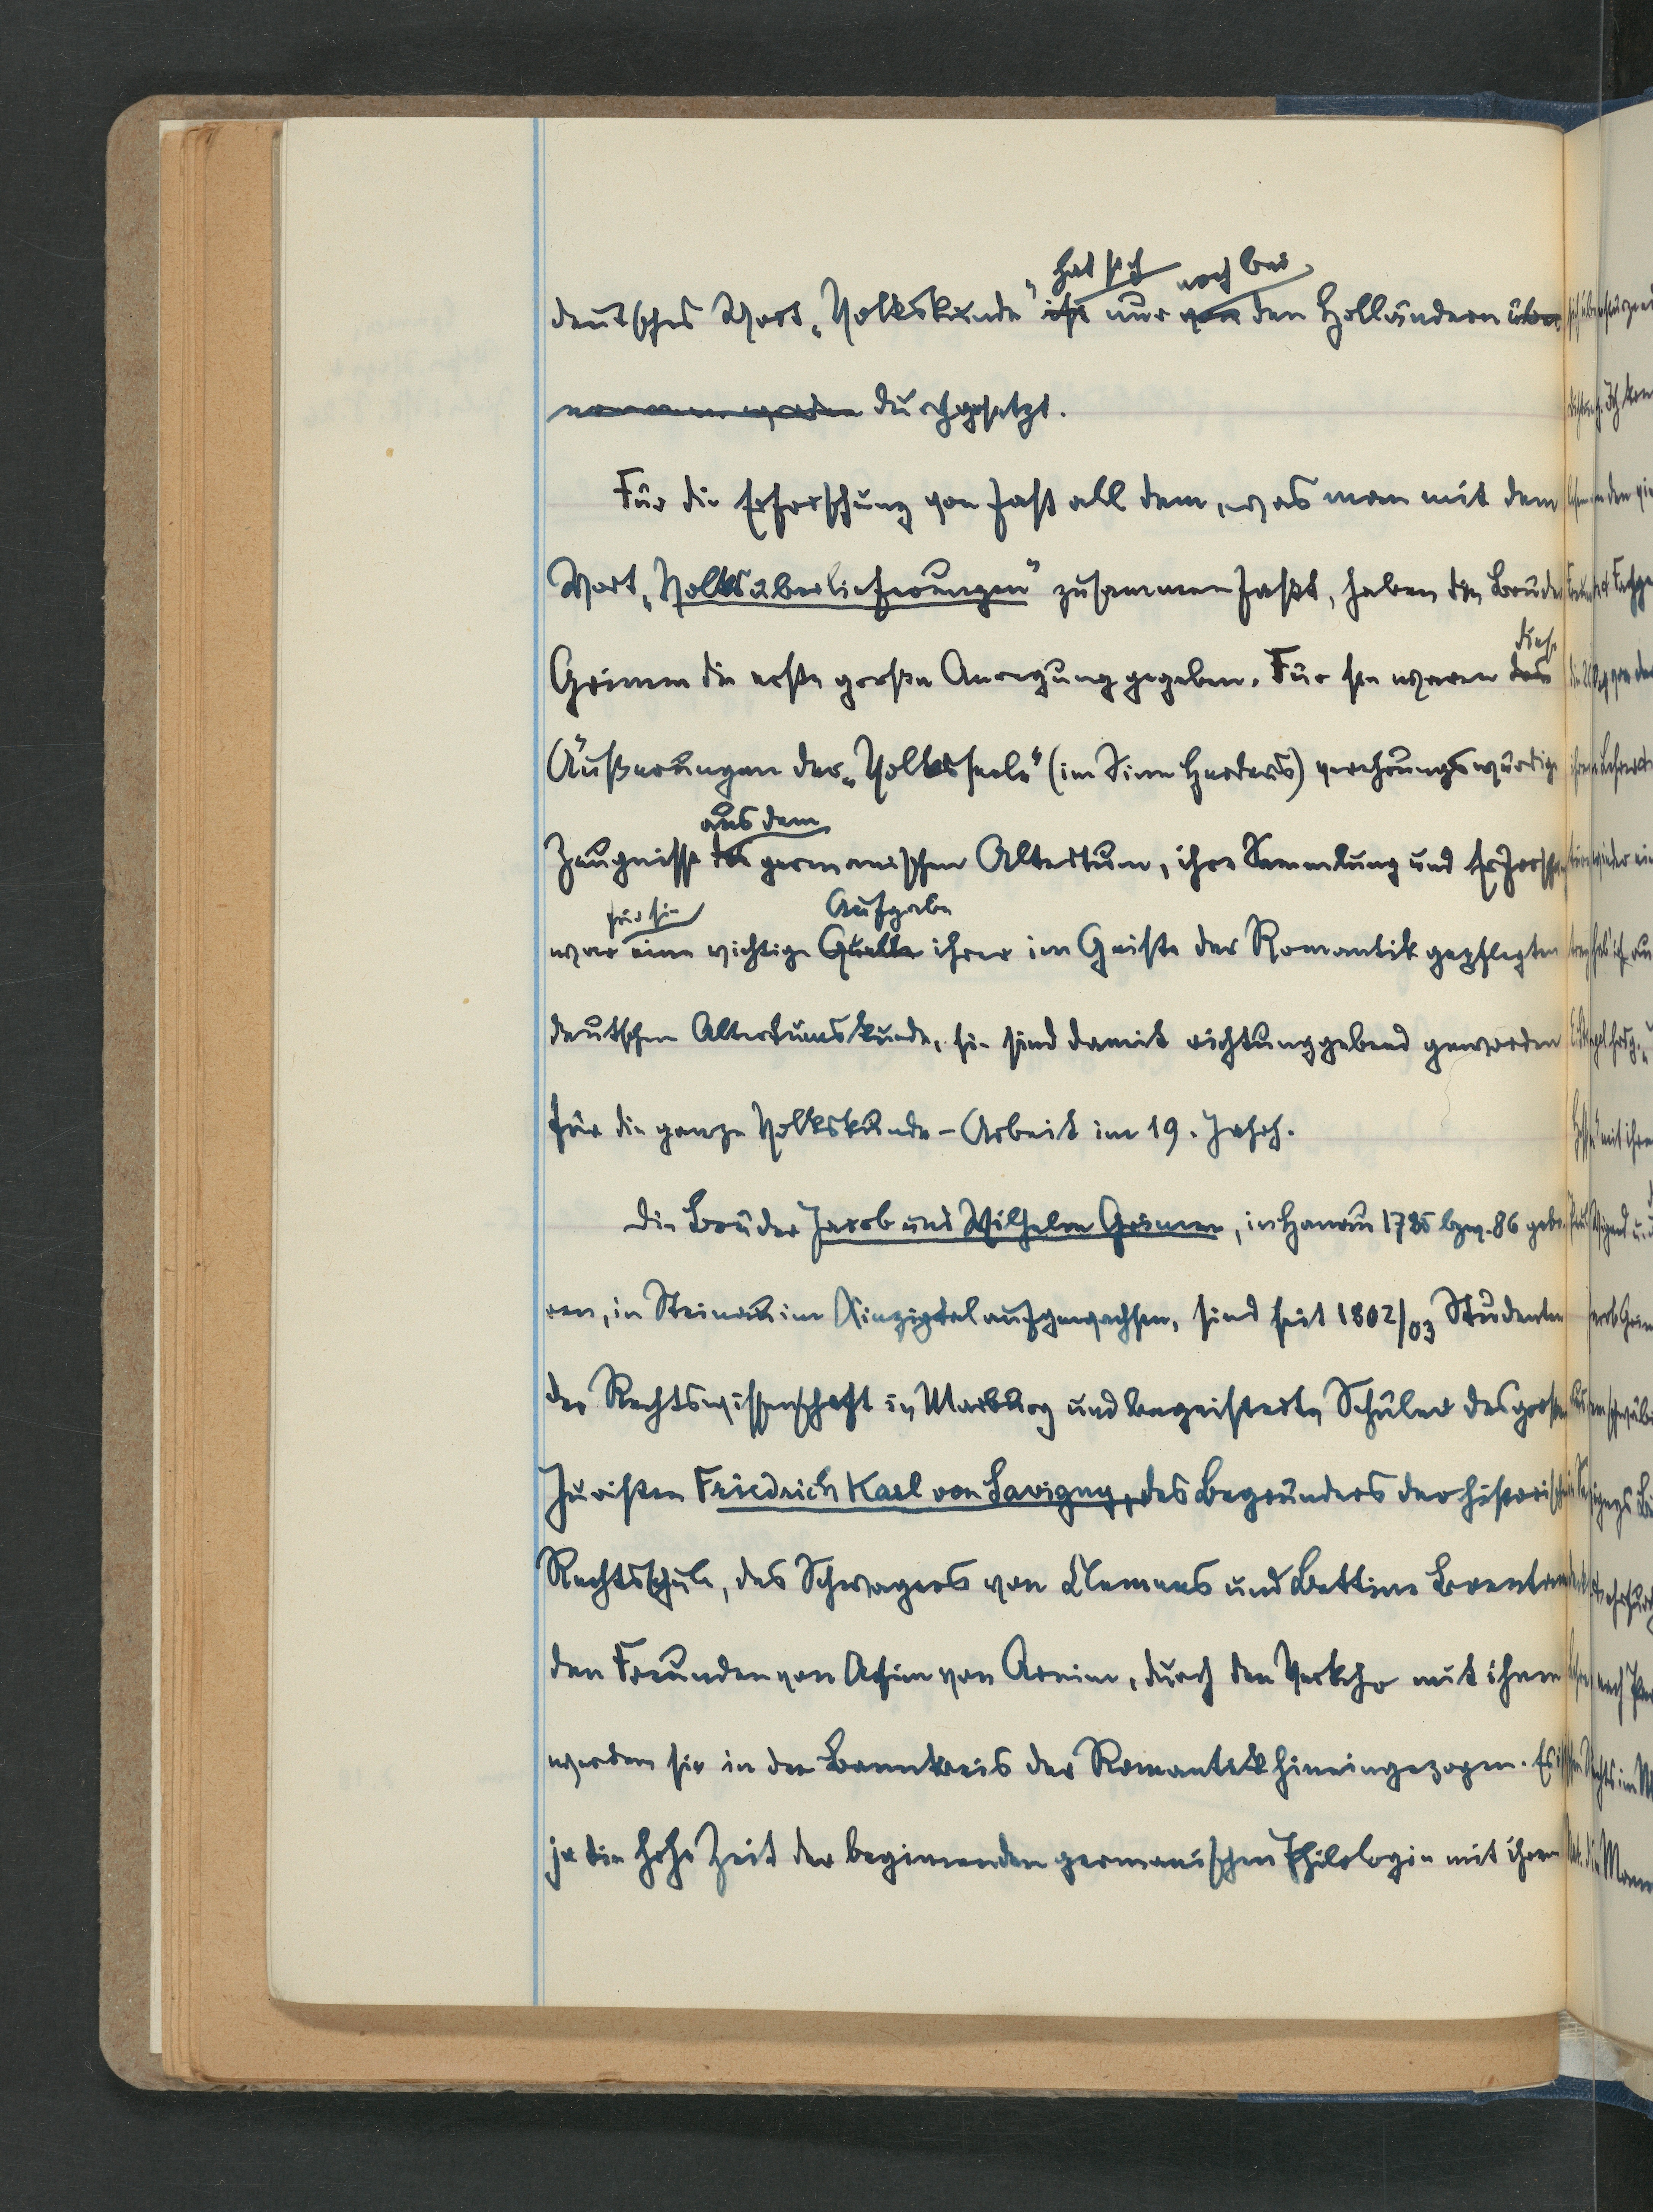 deutsches Wort „Volkskunde" ist hat sich nur von noch bei den Holländern über
nommen worden durchgesetzt.
Für die Erforschung von fast all dem, was man mit dem
Wort „Volksüberlieferungen" zusammenfaßt, haben die Brüder
Grimm die erste große Anregung gegeben. Für sie waren das diese
Äußerungen der „Volksseele" (im Sinne Herders) verehrungswürdige
Zeugnisse des aus dem germanischen Altertum, ihre Sammlung und Erforschung
war für sie eine wichtige Quelle Aufgabe ihrer im Geiste der Romantik gepflegten
deutschen Altertumskunde, sie sind damit richtunggebend geworden
für die ganze Volkskunde-Arbeit im 19. Jahrh.
Die Brüder Jacob und Wilhelm Grimm, in Hanau 1785 bzw. 86 gebo
ren, in Steinau im Kinzigtal aufgewachsen, sind seit 1802/03 Studenten
der Rechtswissenschaft in Marburg und begeisterte Schüler des großen
Juristen Friedrich Karl von Savigny, des Begründers der historischen
Rechtsschule, des Schwagers von Clemens und Bettine Brentano
den Freunden von Achim von Arnim, durch den Verkehr mit ihnen
werden sie in den Bannkreis der Romantik hineingezogen. Es ist
ja die hohe Zeit der beginnenden germanischen Philologie mit ihren